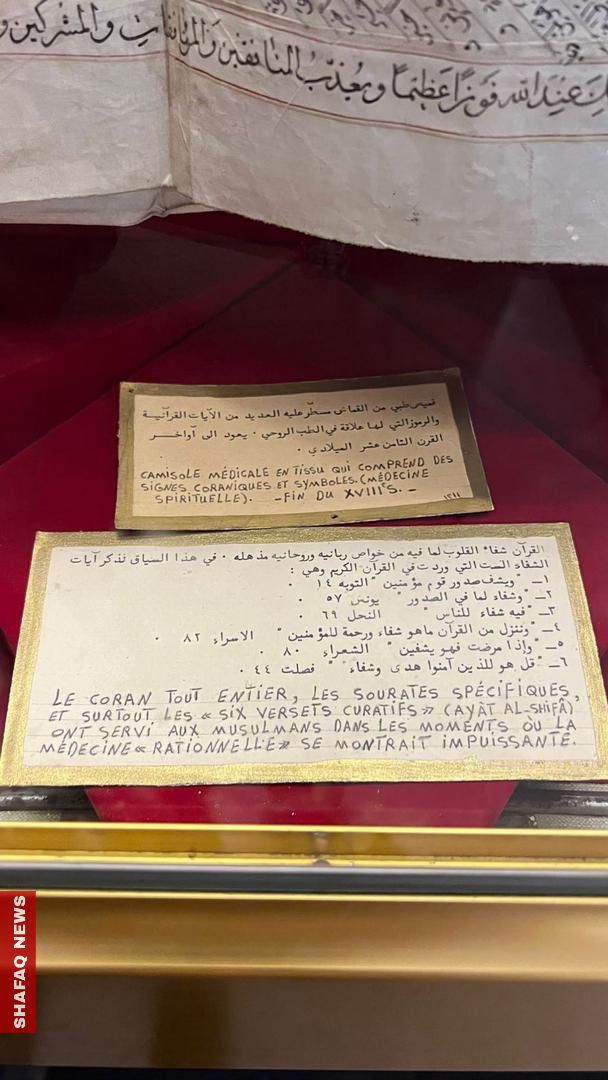 ات والمشركين
لك عند الله فوزا عظيما ويعذب المنافقين والمنافقات والمشركين
قميص طبي من القماش مسطّر عليه العديد من الآيات القرآنية
والرموز التي لها علاقة في الطب الروحي ٠ يعود الى أواخر
القرن الثامن عشر الميلادي ٠
CAMISOLE MÉDICALE EN TISSU QUI COMPREND DES
SIGNES CORANIQUES ET SYMBOLES. (MÉDECINE
SPIRITUELLE). - FIN DU XVIIIᵉ S. -
القرآن شفاء القلوب لما فيه من خواص ربانيه وروحانيه مذهله ٠ في هذا السياق نذكر آيات
الشفاء الست التي وردت في القرآن الكريم وهي :
١ـ "ويشف صدور قوم مؤمنين" التوبه ١٤ ٠
٢ـ "وشفاء لما في الصدور" يونس ٥٧ ٠
٣ـ "فيه شفاء للناس" النحل ٦٩ ٠
٤ـ "وننزل من القرآن ماهو شفاء ورحمة للمؤمنين" الاسراء ٨٢ ٠
٥ـ "وإذا مرضت فهو يشفين" الشعراء ٨٠ ٠
٦ـ "قل هو للذين آمنوا هدى وشفاء" فصلت ٤٤ ٠
LE CORAN TOUT ENTIER, LES SOURATES SPÉCIFIQUES,
ET SURTOUT LES « SIX VERSETS CURATIFS » (AYÀT AL-SHIFÂ)
ONT SERVI AUX MUSULMANS DANS LES MOMENTS OÙ LA
MÉDECINE « RATIONNELLE » SE MONTRAIT IMPUISSANTE.
SHAFAQ NEWS